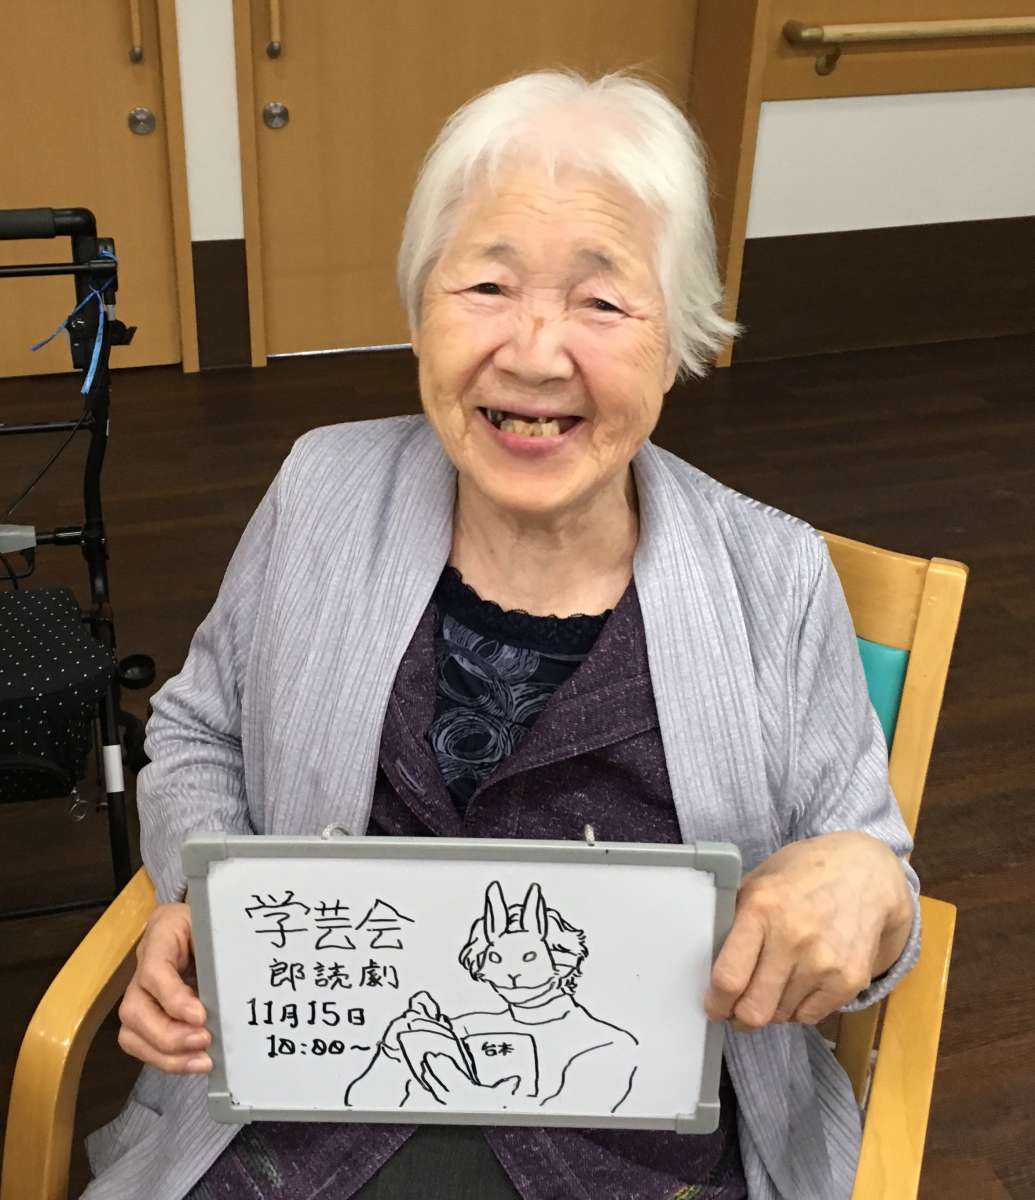 学芸会
郎読劇
11月15日
10:00～
台本